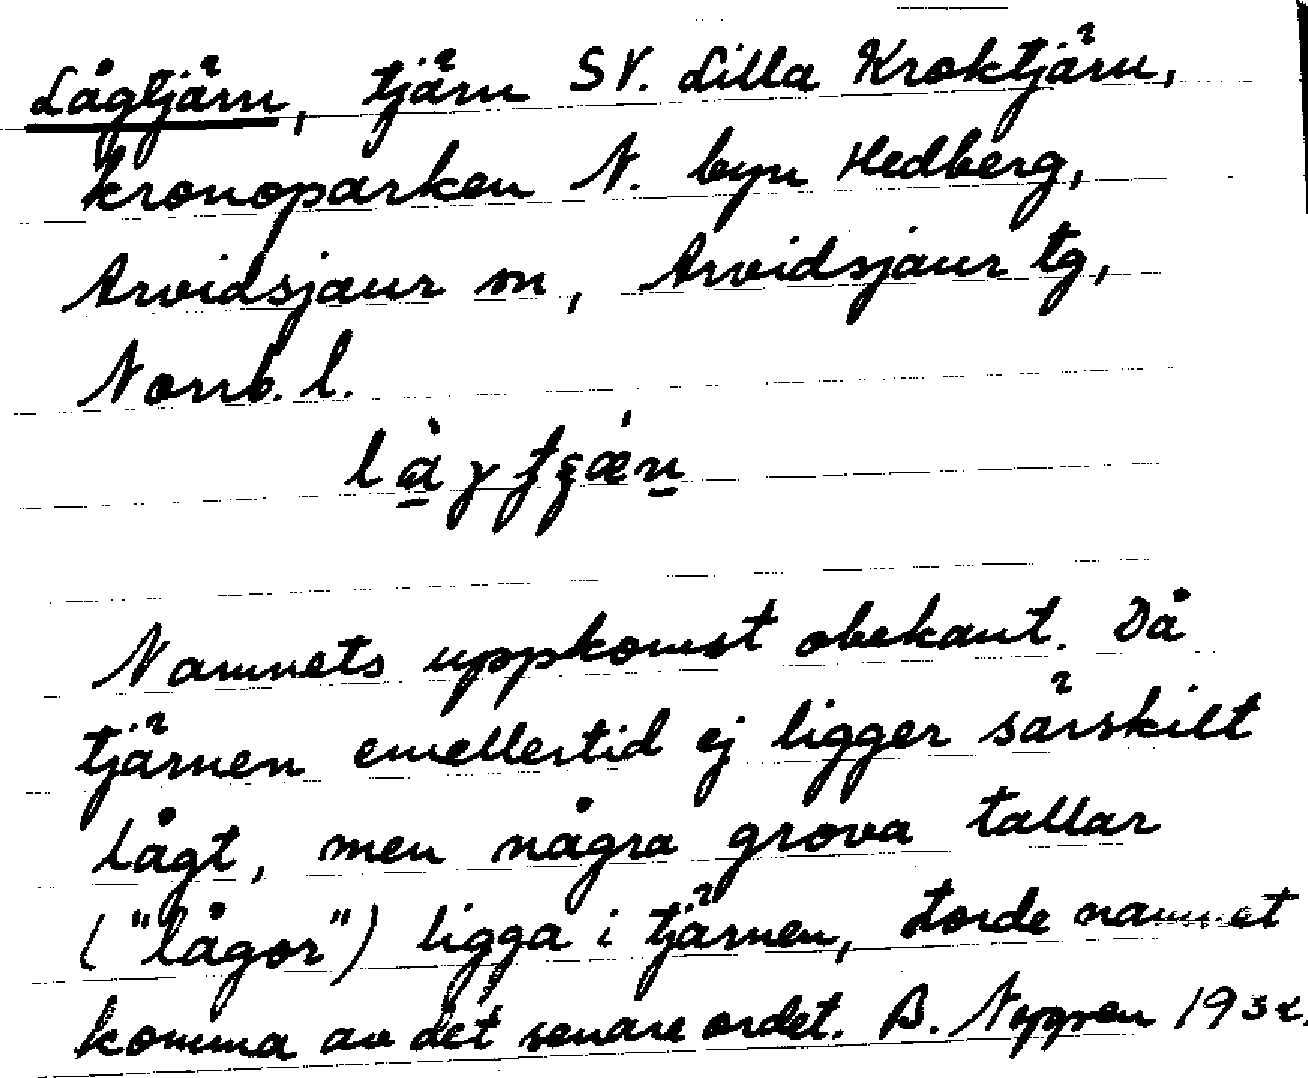 Lågtjärn, tjärn SV. Lilla Kroktjärn,
kronoparken N. byn Hedberg,
Arvidsjaur sn, Arvidsjaur tg,
Norrb. l.
Namnets uppkomst obekant. Då
tjärnen emellertid ej ligger särskilt
lågt, men några grova tallar
("lågor") ligga i tjärnen, torde namnet
komma av det senare ordet. B. Nygren